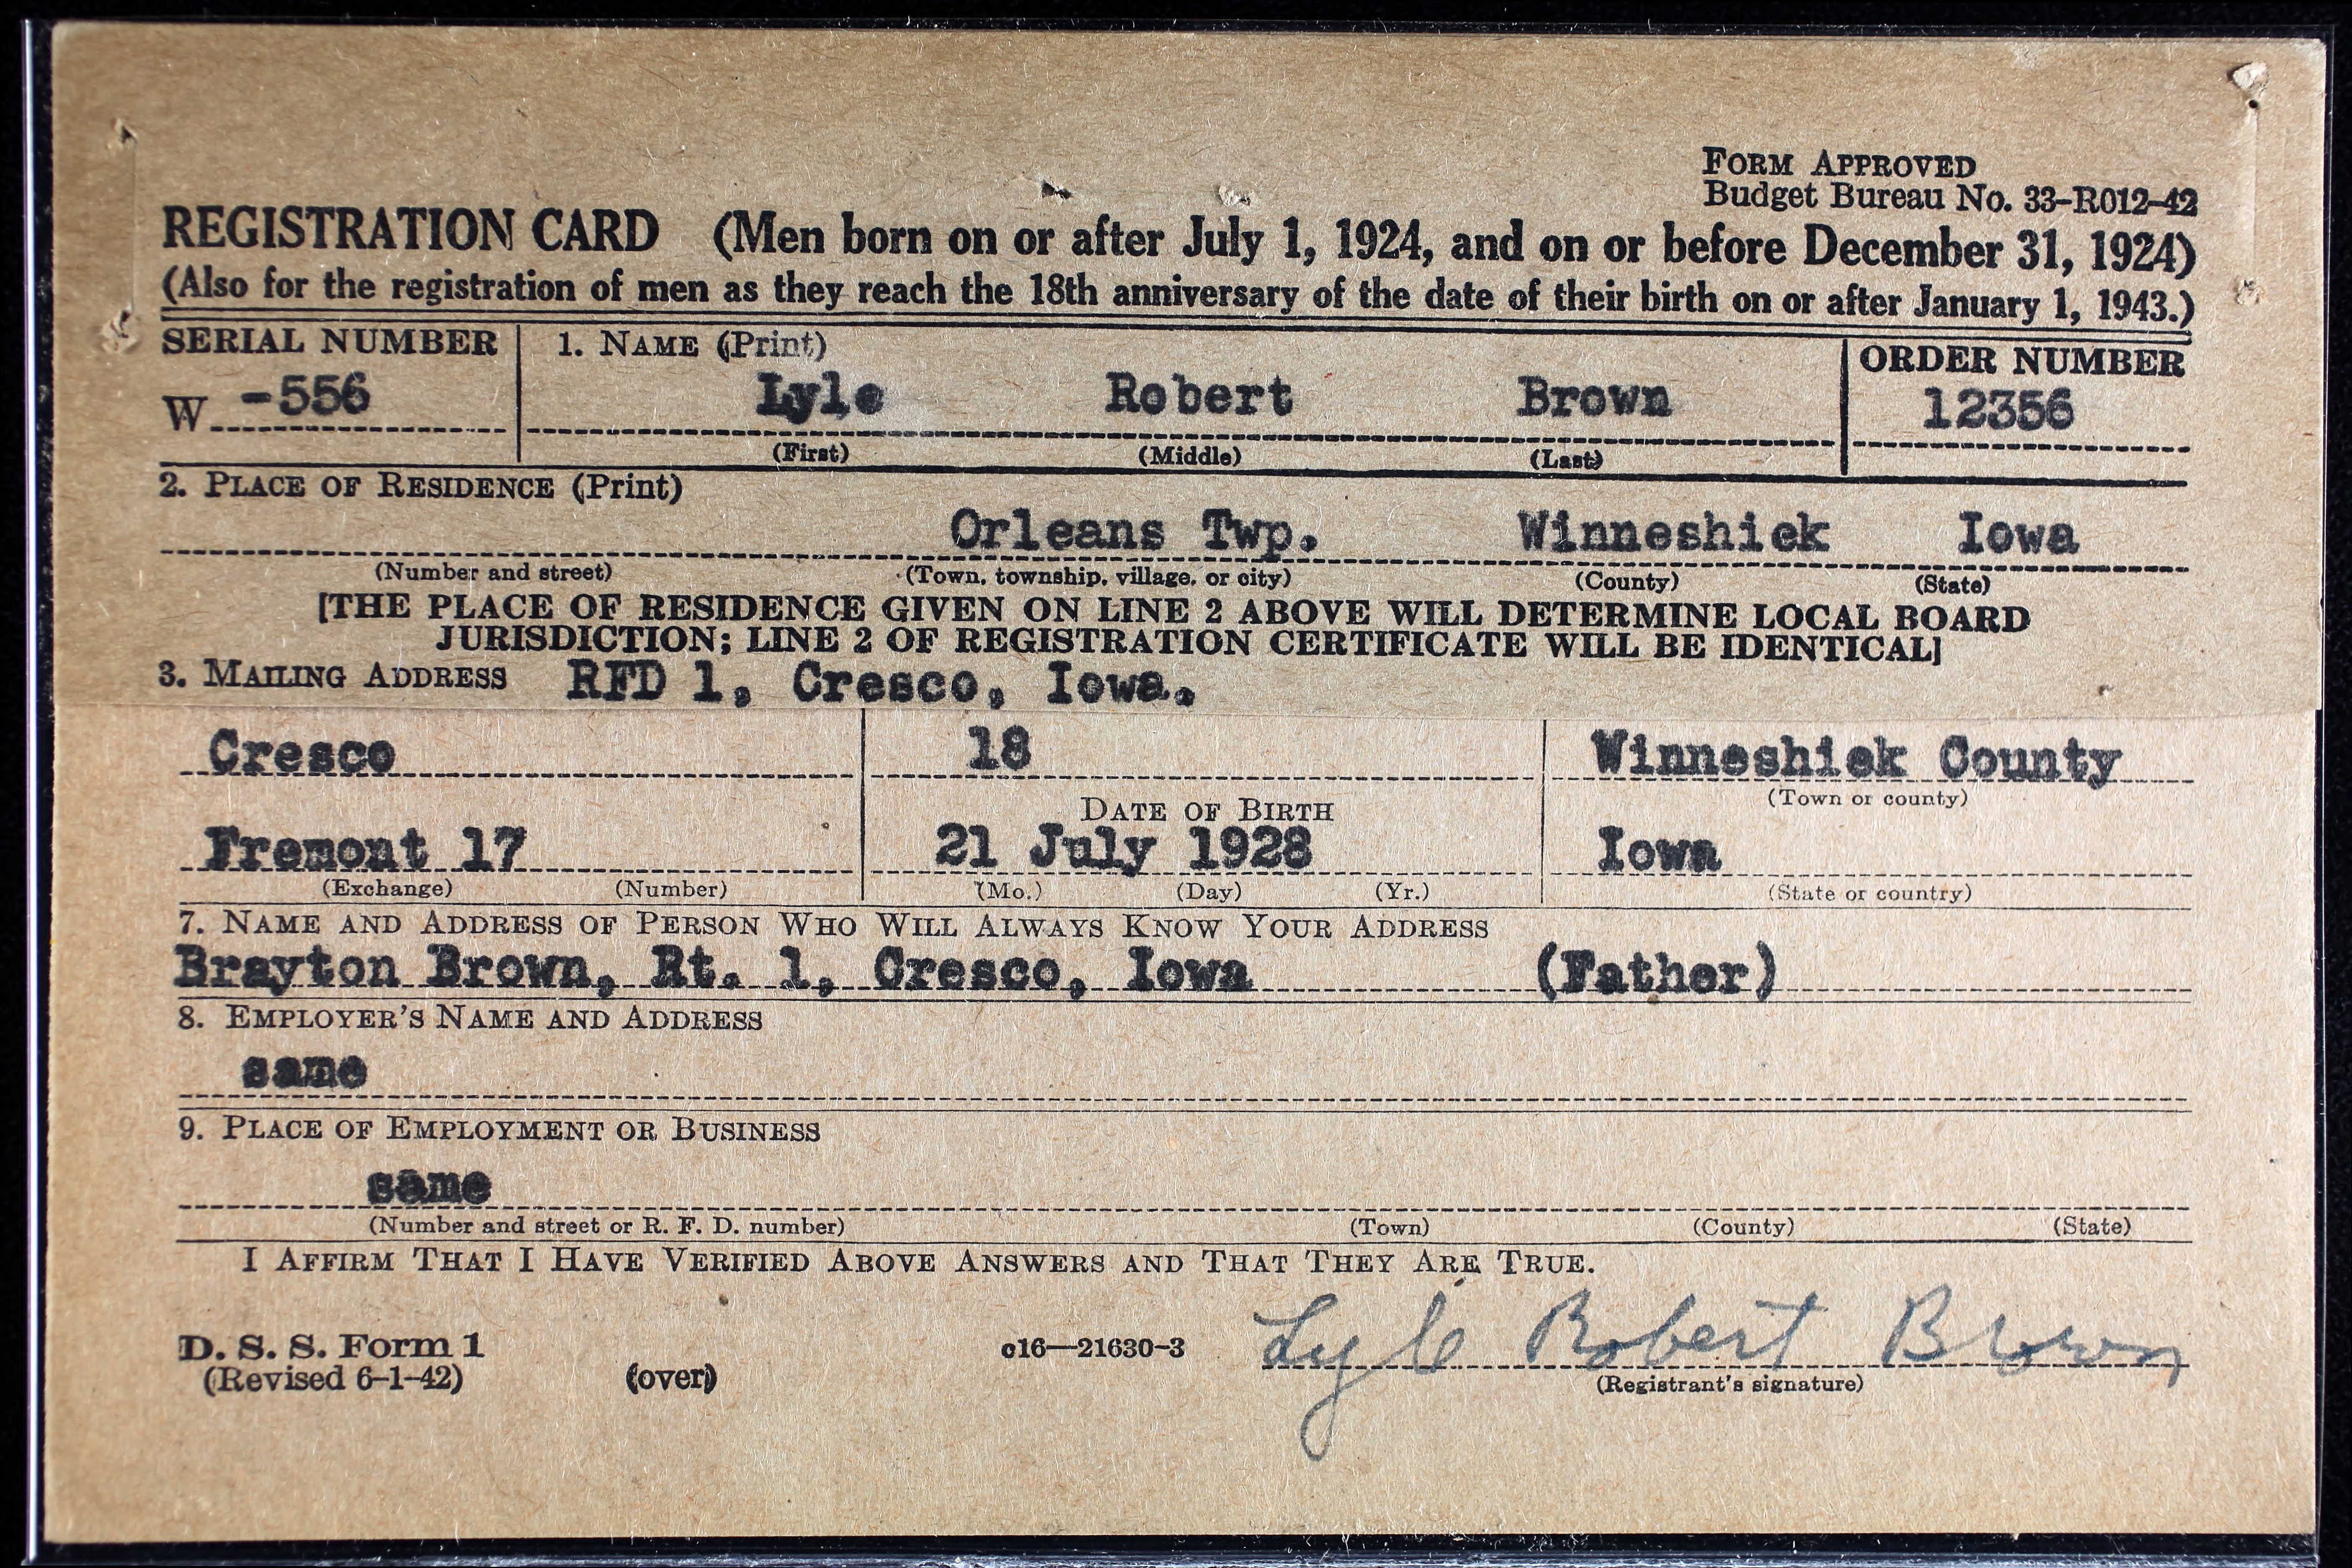 FORM APPROVED
Budget Bureau No. 33-R012-42
REGISTRATION CARD (Men born on or after July 1, 1924, and on or before December 31, 1924)
(Also for the registration of men as they reach the 18th anniversary of the date of their birth on or after January 1, 1943.)
SERIAL NUMBER 1. NAME (Print) ORDER NUMBER
W -556 Lyle Robert Brown 12356
(First) (Middle) (Last)
2. PLACE OF RESIDENCE (Print)
Orleans Twp. Winneshiek Iowa
(Number and street) (Town, township, village, or city) (County) (State)
[THE PLACE OF RESIDENCE GIVEN ON LINE 2 ABOVE WILL DETERMINE LOCAL BOARD
JURISDICTION; LINE 2 OF REGISTRATION CERTIFICATE WILL BE IDENTICAL]
3. MAILING ADDRESS RFD 1, Cresco, Iowa.
Cresco 18 Winneshiek County
DATE OF BIRTH (Town or county)
Fremont 17 21 July 1928 Iowa
(Exchange) (Number) (Mo.) (Day) (Yr.) (State or country)
7. NAME AND ADDRESS OF PERSON WHO WILL ALWAYS KNOW YOUR ADDRESS
Brayton Brown, Rt. 1, Cresco, Iowa (Father)
8. EMPLOYER'S NAME AND ADDRESS
same
9. PLACE OF EMPLOYMENT OR BUSINESS
same
(Number and street or R. F. D. number) (Town) (County) (State)
I AFFIRM THAT I HAVE VERIFIED ABOVE ANSWERS AND THAT THEY ARE TRUE.
D. S. S. Form 1 c16—21630-3 Lyle Robert Brown
(Revised 6-1-42) (over) (Registrant's signature)